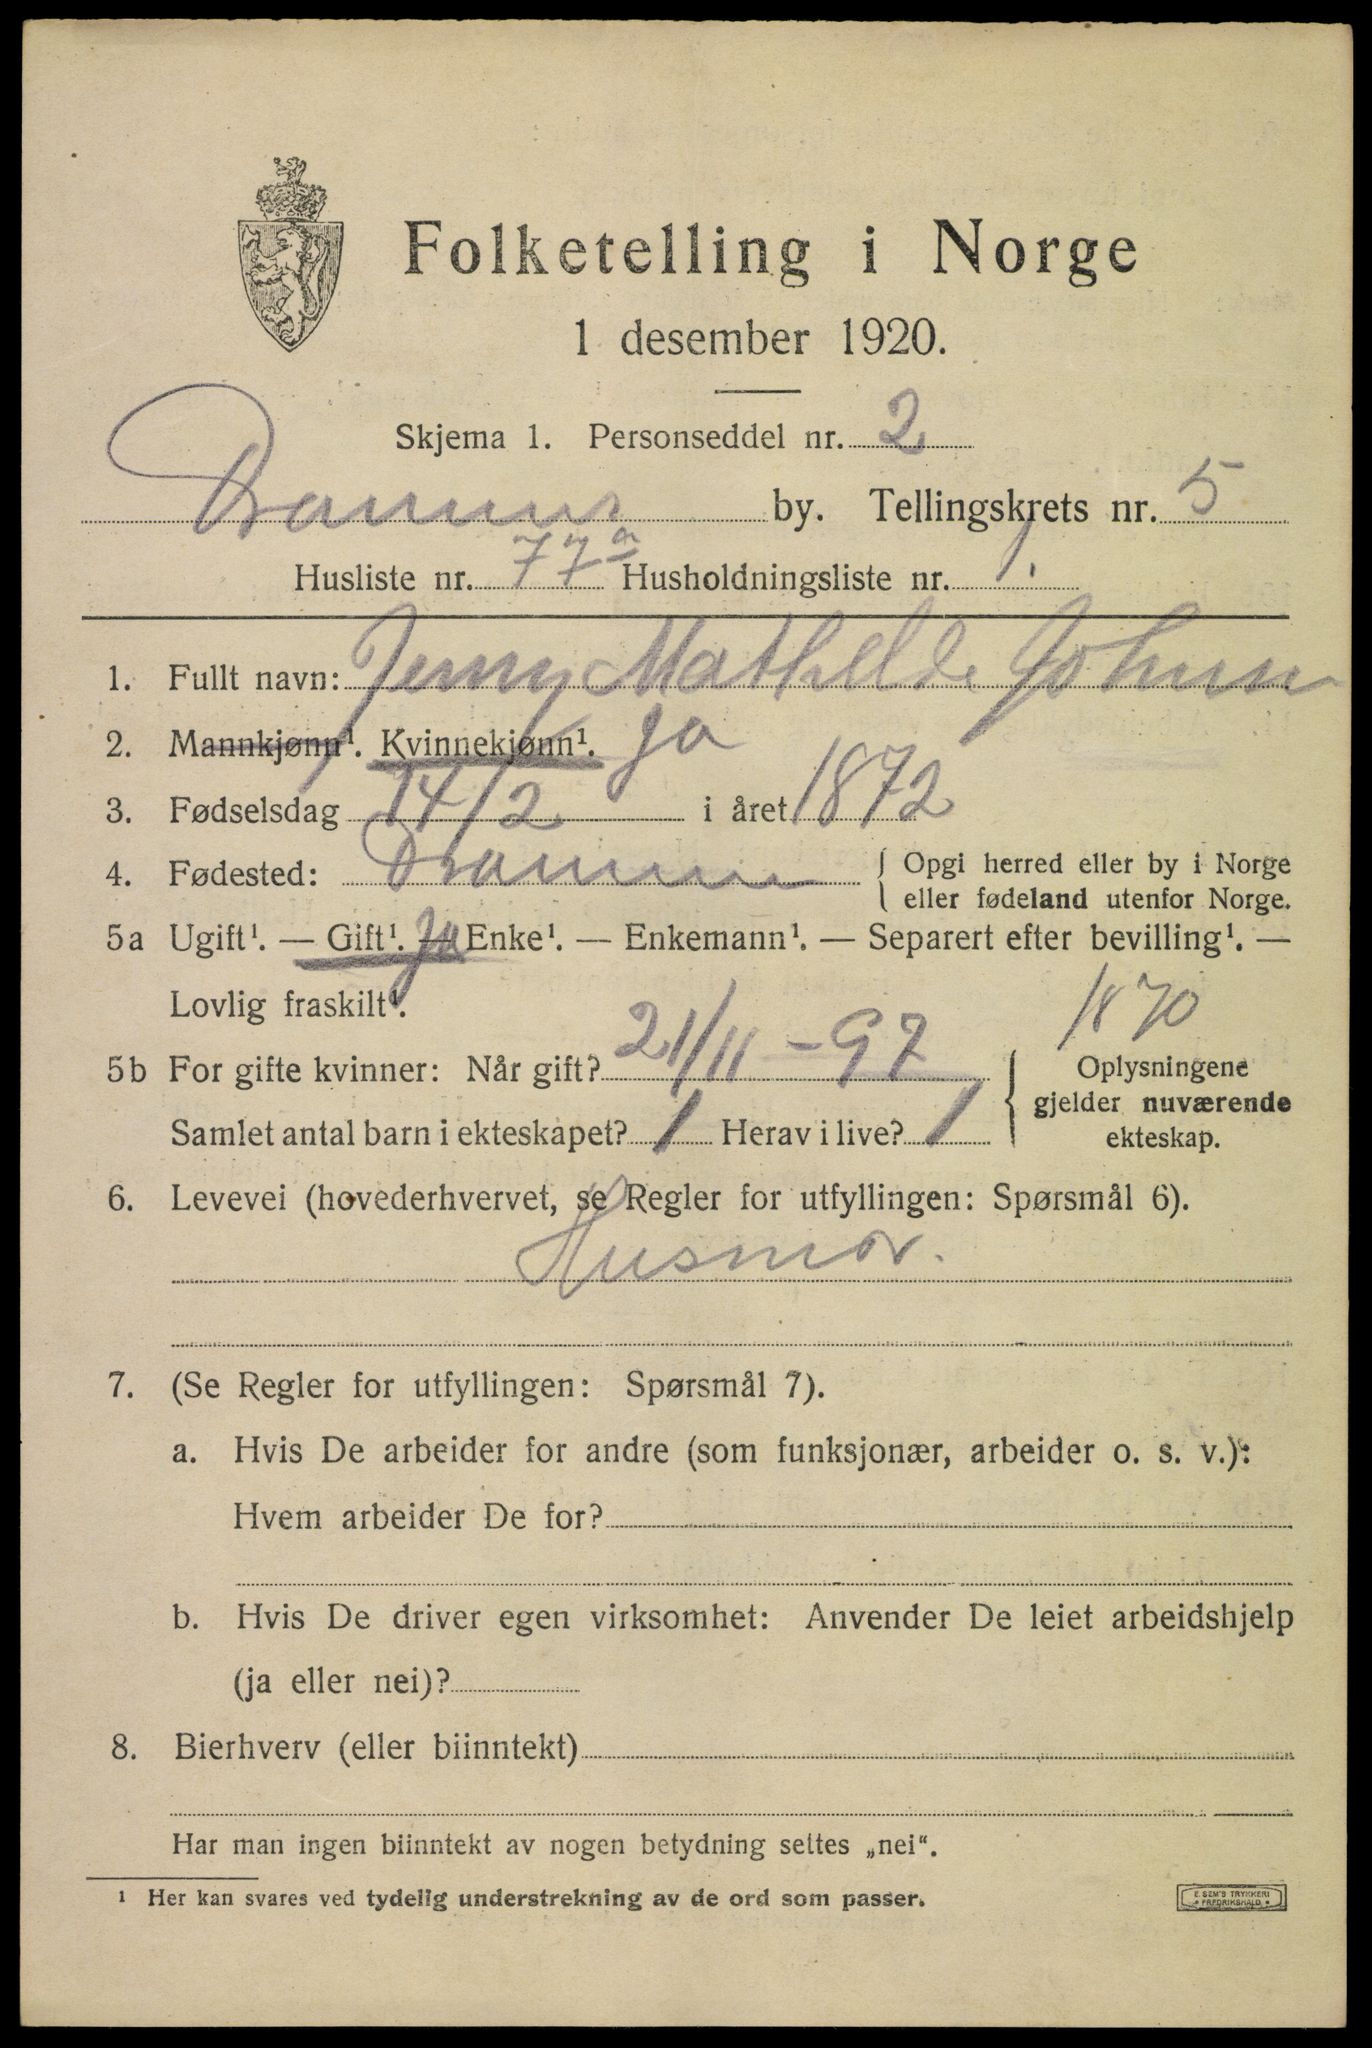 Folketelling i Norge
1 desember 1920.
Skjema 1. Personseddel nr. 2
Drammen by. Tellingskrets nr. 5
Husliste nr. 77a Husholdningsliste nr. 1.
1. Fullt navn: Jenny Mathilde Johnsen
2. Mannkjønn¹. Kvinnekjønn¹. ja
3. Fødselsdag 14/2 i året 1872
4. Fødested: Drammen { Opgi herred eller by i Norge
eller fødeland utenfor Norge.
5a Ugift¹. — Gift¹. — Ja Enke¹. — Enkemann¹. — Separert efter bevilling¹. —
Lovlig fraskilt¹. 1870
5b For gifte kvinner: Når gift? 21/11 - 97 { Oplysningene
gjelder nuværende
Samlet antal barn i ekteskapet? 1 Herav i live? 1 ekteskap.
6. Levevei (hovederhvervet, se Regler for utfyllingen: Spørsmål 6).
Husmor.
7. (Se Regler for utfyllingen: Spørsmål 7).
a. Hvis De arbeider for andre (som funksjonær, arbeider o. s. v.):
Hvem arbeider De for?
b. Hvis De driver egen virksomhet: Anvender De leiet arbeidshjelp
(ja eller nei)?
8. Bierhverv (eller biinntekt)
Har man ingen biinntekt av nogen betydning settes „nei“.
¹ Her kan svares ved tydelig understrekning av de ord som passer.
E. SEM'S TRYKKERI
FREDRIKSHALD